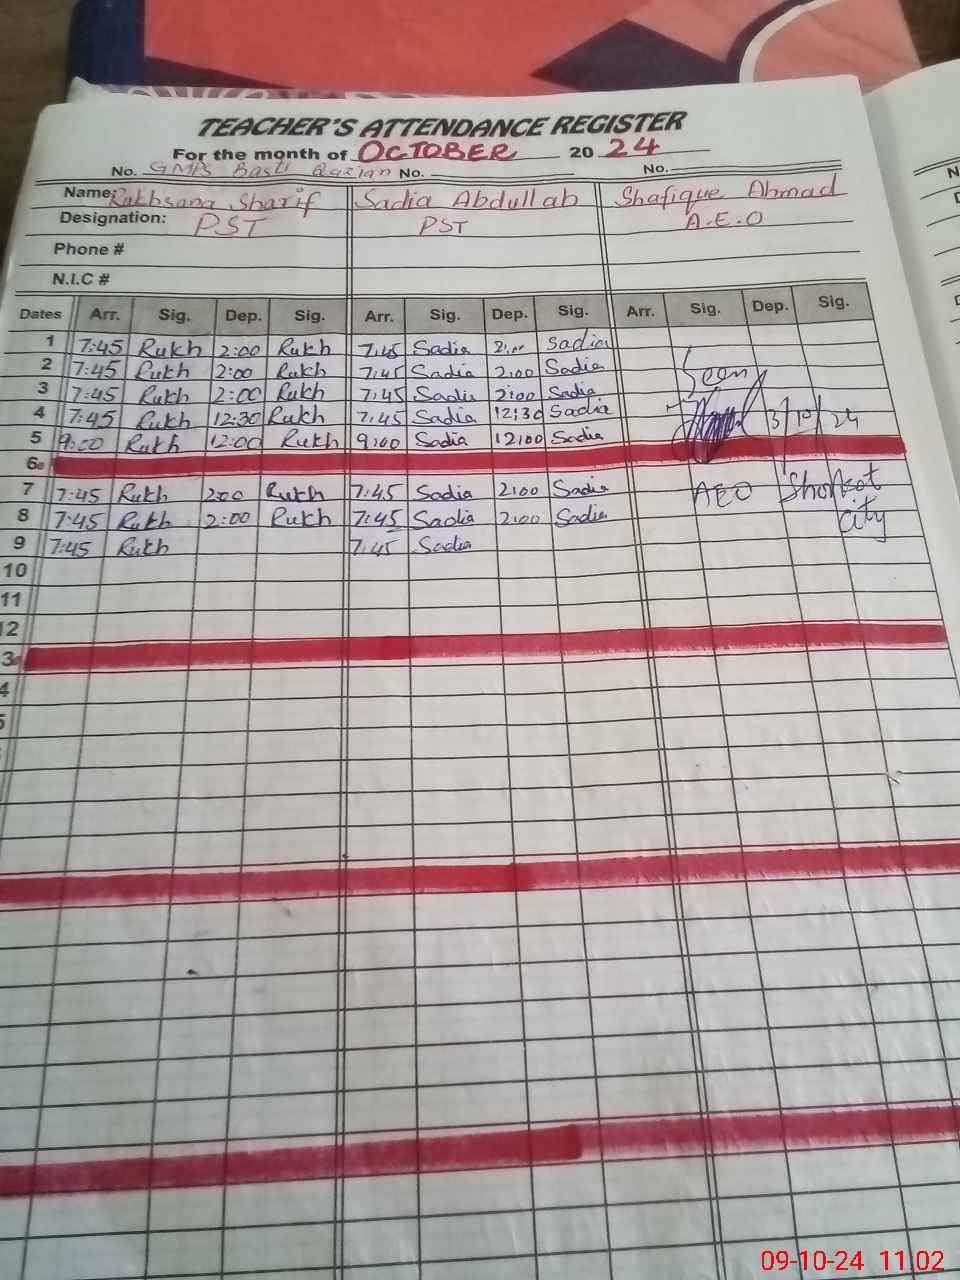 TEACHER'S ATTENDANCE REGISTER
For the month of OCTOBER 20 24
No. GMPS Basti Qazian No. No.
Name: Rukhsana Sharif Sadia Abdullah Shafique Ahmad
Designation: PST PST A.E.O
Phone #
N.I.C #
Dates Arr. Sig. Dep. Sig. Arr. Sig. Dep. Sig. Arr. Sig. Dep. Sig.
1 7:45 Rukh 2:00 Rukh 7:45 Sadia 2:00 Sadia
2 7:45 Rukh 2:00 Rukh 7:45 Sadia 2:00 Sadia Seen
3 7:45 Rukh 2:00 Rukh 7:45 Sadia 2:00 Sadia
4 7:45 Rukh 12:30 Rukh 7:45 Sadia 12:30 Sadia 3/10/24
5 9:00 Rukh 12:00 Rukh 9:00 Sadia 12:00 Sadia
6
7 7:45 Rukh 2:00 Rukh 7:45 Sadia 2:00 Sadia AEO Shorkot
8 7:45 Rukh 2:00 Rukh 7:45 Sadia 2:00 Sadia city
9 7:45 Rukh 7:45 Sadia
10
11
12
3
4
5
09-10-24 11:02